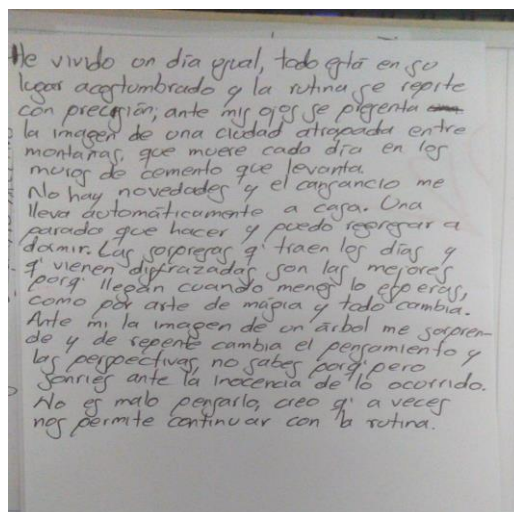 He vivido un día igual, todo está en su
lugar acostumbrado y la rutina se repite
con precisión; ante mis ojos se presenta
la imagen de una ciudad atrapada entre
montañas, que muere cada día en los
muros de cemento que levanta.
No hay novedades y el cansancio me
lleva automáticamente a casa. Una
parada que hacer y puedo regresar a
dormir. Las sorpresas q' traen los días y
q' vienen disfrazadas son las mejores
porq' llegan cuando menos lo esperas,
como por arte de magia y todo cambia.
Ante mi la imagen de un árbol me sorpren-
de y de repente cambia el pensamiento y
las perspectivas, no sabes porq' pero
sonries ante la inocencia de lo ocurrido.
No es malo pensarlo, creo q' a veces
nos permite continuar con la rutina.